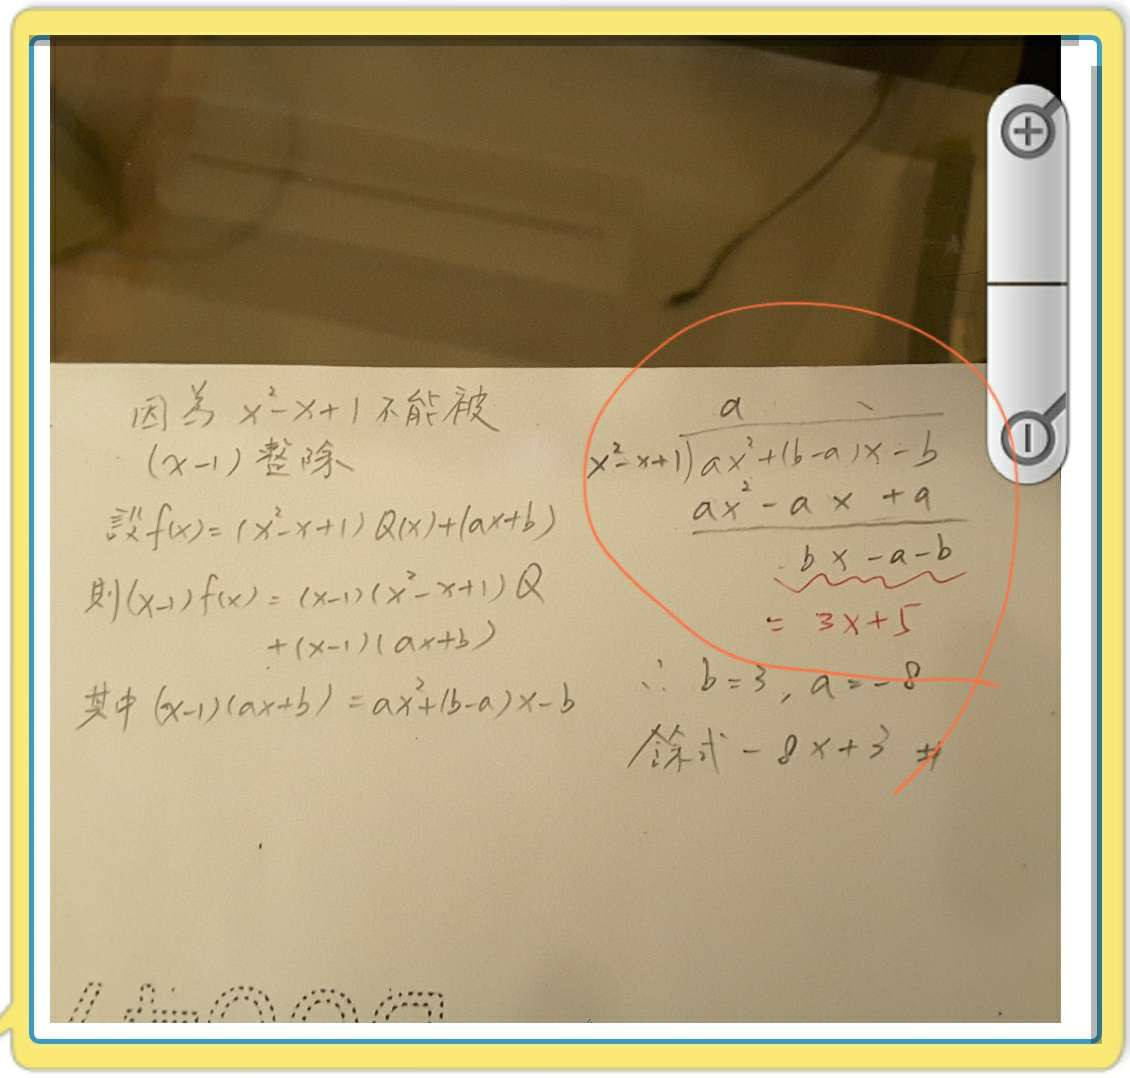 因為 x²-x+1 不能被
(x-1) 整除
設 f(x) = (x²-x+1) Q(x)+(ax+b)
則 (x-1) f(x) = (x-1)(x²-x+1) Q
+(x-1)(ax+b)
其中 (x-1)(ax+b) = ax²+(b-a)x-b
a
x²-x+1) ax²+(b-a)x-b
ax²-ax+a
bx-a-b
= 3x+5
∴ b=3, a=-8
餘式 -8x+3 #